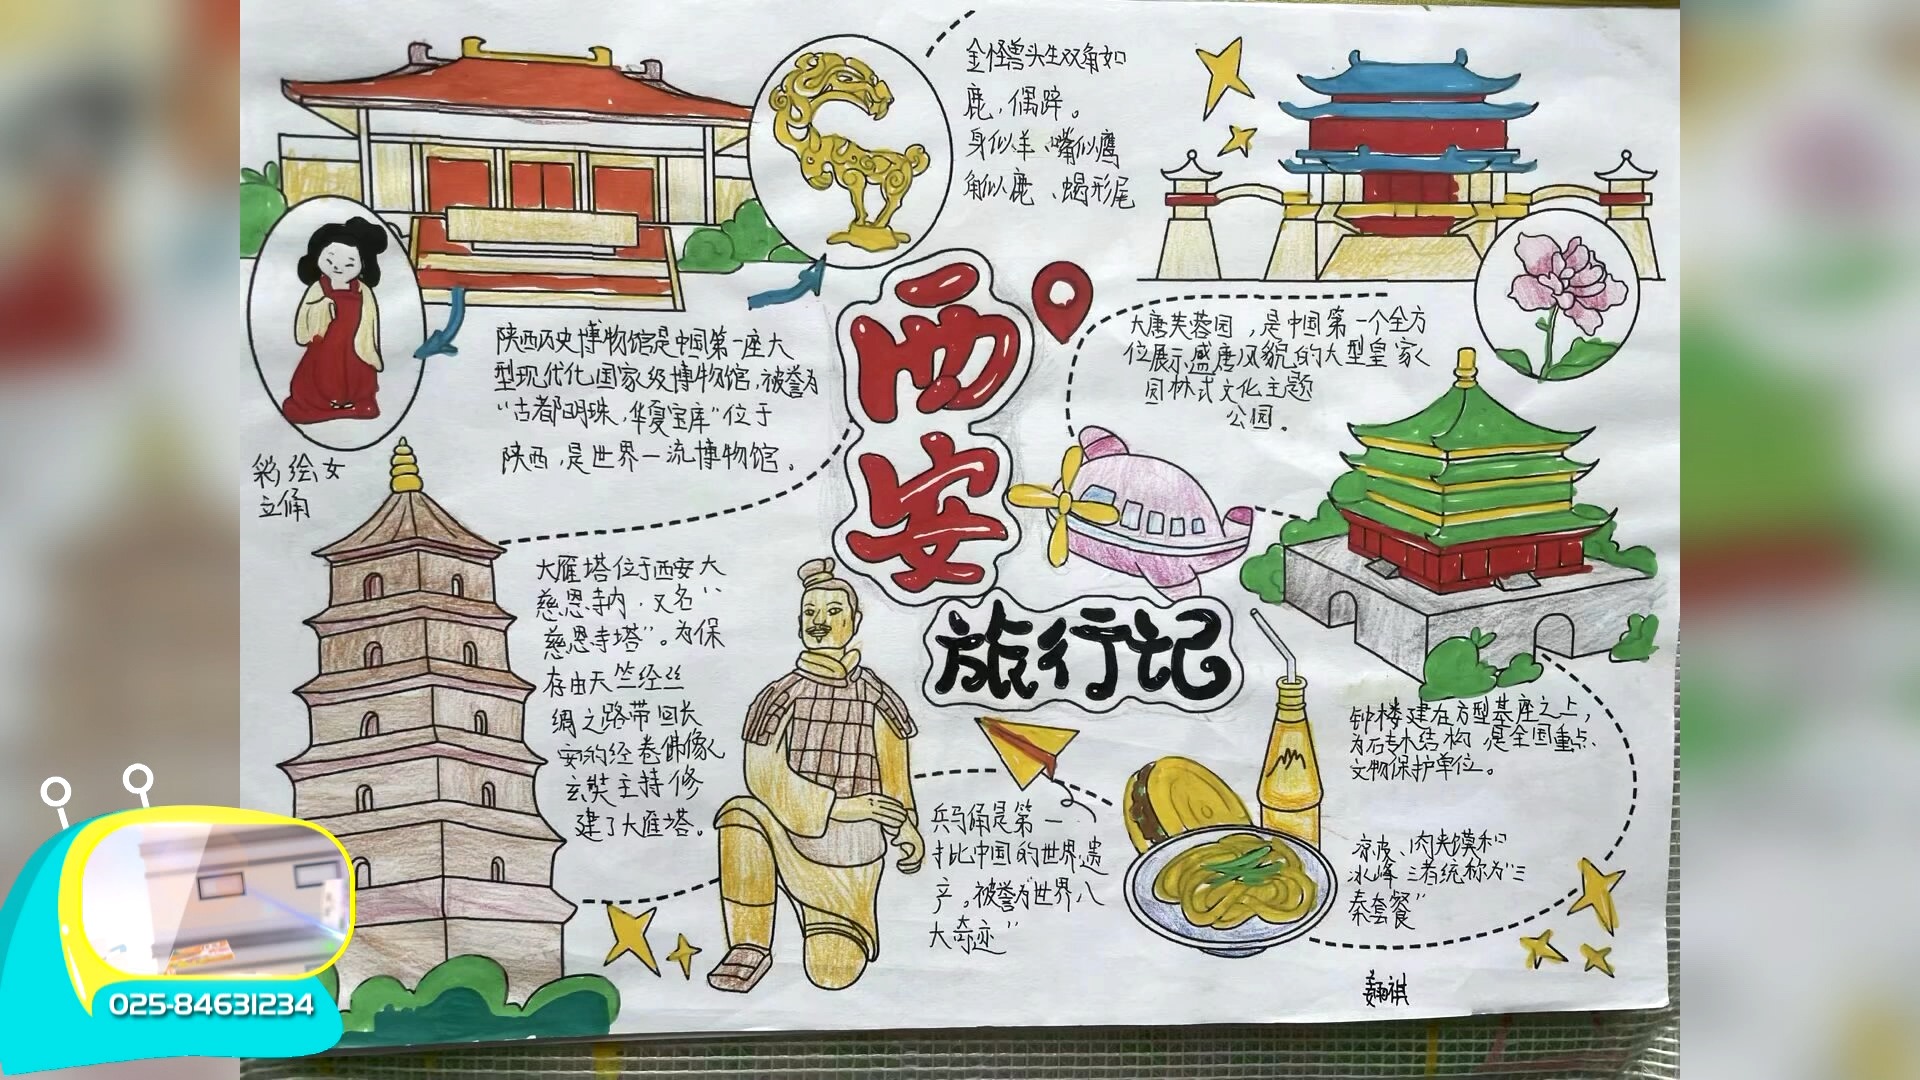 金怪兽头生双角如
鹿,偶蹄。
身似羊、嘴似鹰
角似鹿、蝎形尾
彩绘女
立俑
陕西历史博物馆是中国第一座大
型现代化国家级博物馆,被誉为
“古都明珠,华夏宝库”位于
陕西,是世界一流博物馆。
西安
旅行记
大唐芙蓉园,是中国第一个全方
位展示盛唐风貌的大型皇家
园林式文化主题
公园。
大雁塔位于西安大
慈恩寺内,又名“
慈恩寺塔”。为保
存由天竺经丝
绸之路带回长
安的经卷佛像
玄奘主持修
建了大雁塔。
兵马俑是第一
批中国的世界遗
产。被誉为“世界八
大奇迹”
钟楼建在方型基座之上,
为砖木结构,是全国重点
文物保护单位。
凉皮、肉夹馍和
冰峰三者统称为“三
秦套餐”
025-84631234